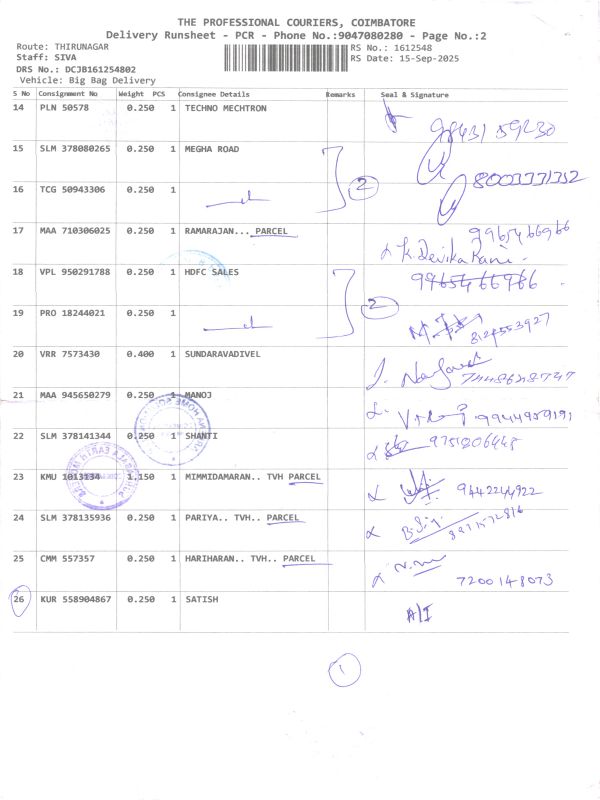 THE PROFESSIONAL COURIERS, COIMBATORE
Delivery Runsheet - PCR - Phone No.:9047080280 - Page No.:2
Route: THIRUNAGAR RS No.: 1612548
Staff: SIVA RS Date: 15-Sep-2025
DRS No.: DCJB161254802
Vehicle: Big Bag Delivery
S No Consignment No Weight PCS Consignee Details Remarks Seal & Signature
14 PLN 50578 0.250 1 TECHNO MECHTRON
98431 59230
15 SLM 378080265 0.250 1 MEGHA ROAD
2 8003331352
16 TCG 50943306 0.250 1
17 MAA 710306025 0.250 1 RAMARAJAN... PARCEL 9965466966
K. Devika Rani
18 VPL 950291788 0.250 1 HDFC SALES 9965466966
2
19 PRO 18244021 0.250 1
8124553927
20 VRR 7573430 0.400 1 SUNDARAVADIVEL
21 MAA 945650279 0.250 1 MANOJ
9944959191
22 SLM 378141344 0.250 1 SHANTI
23 KMU 1013134 1.150 1 MIMMIDAMARAN.. TVH PARCEL
9442244922
24 SLM 378135936 0.250 1 PARIYA.. TVH.. PARCEL
25 CMM 557357 0.250 1 HARIHARAN.. TVH.. PARCEL
7200148073
26 KUR 558904867 0.250 1 SATISH
A/I
1